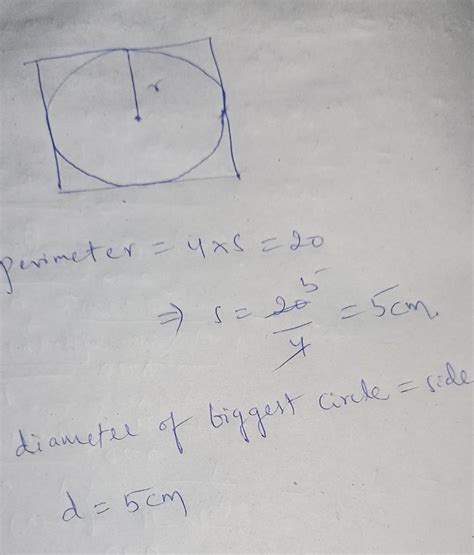 r
perimeter = 4×s = 20
⇒ s = 20/4 5 = 5cm
diameter of biggest circle = side
d = 5cm